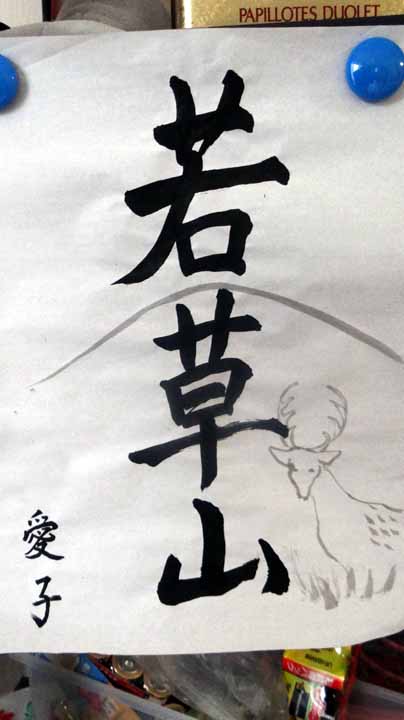 PAPILLOTES DUOLET
若草山
愛子